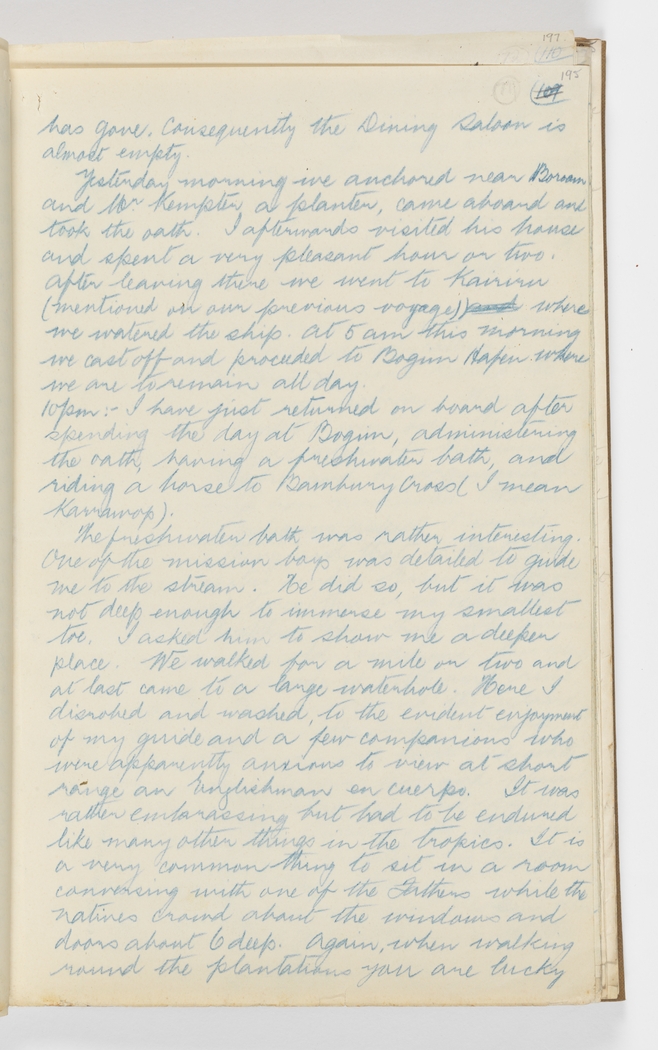 197
195
109
has gone. Consequently the Dining Saloon is
almost empty.
Yesterday morning we anchored near Boroam
and Mr Kempter a planter, came aboard and
took the oath. I afterwards visited his house
and spent a very pleasant hour or two.
After leaving there we went to Kairiru
(mentioned on our previous voyage) and where
we watered the ship. At 5 am this morning
we cast off and proceeded to Bogim Hafen where
we are to remain all day.
10 pm:- I have just returned on board after
spending the day at Bogim, administering
the oath, having a freshwater bath, and
riding a horse to Bambury Cross (I mean
Karrawop).
The freshwater bath was rather interesting.
One of the mission boys was detailed to guide
me to the stream. He did so, but it was
not deep enough to immerse my smallest
toe. I asked him to show me a deeper
place. We walked for a mile or two and
at last came to a large waterhole. Here I
disrobed and washed, to the evident enjoyment
of my guide and a few companions who
were apparently anxious to view at short
range an Englishman en cuerpo. It was
rather embarassing but had to be endured
like many other things in the tropics. It is
a very common thing to sit in a room
conversing with one of the Fathers while the
natives crowd about the windows and
doors about 6 deep. Again, when walking
round the plantations you are lucky